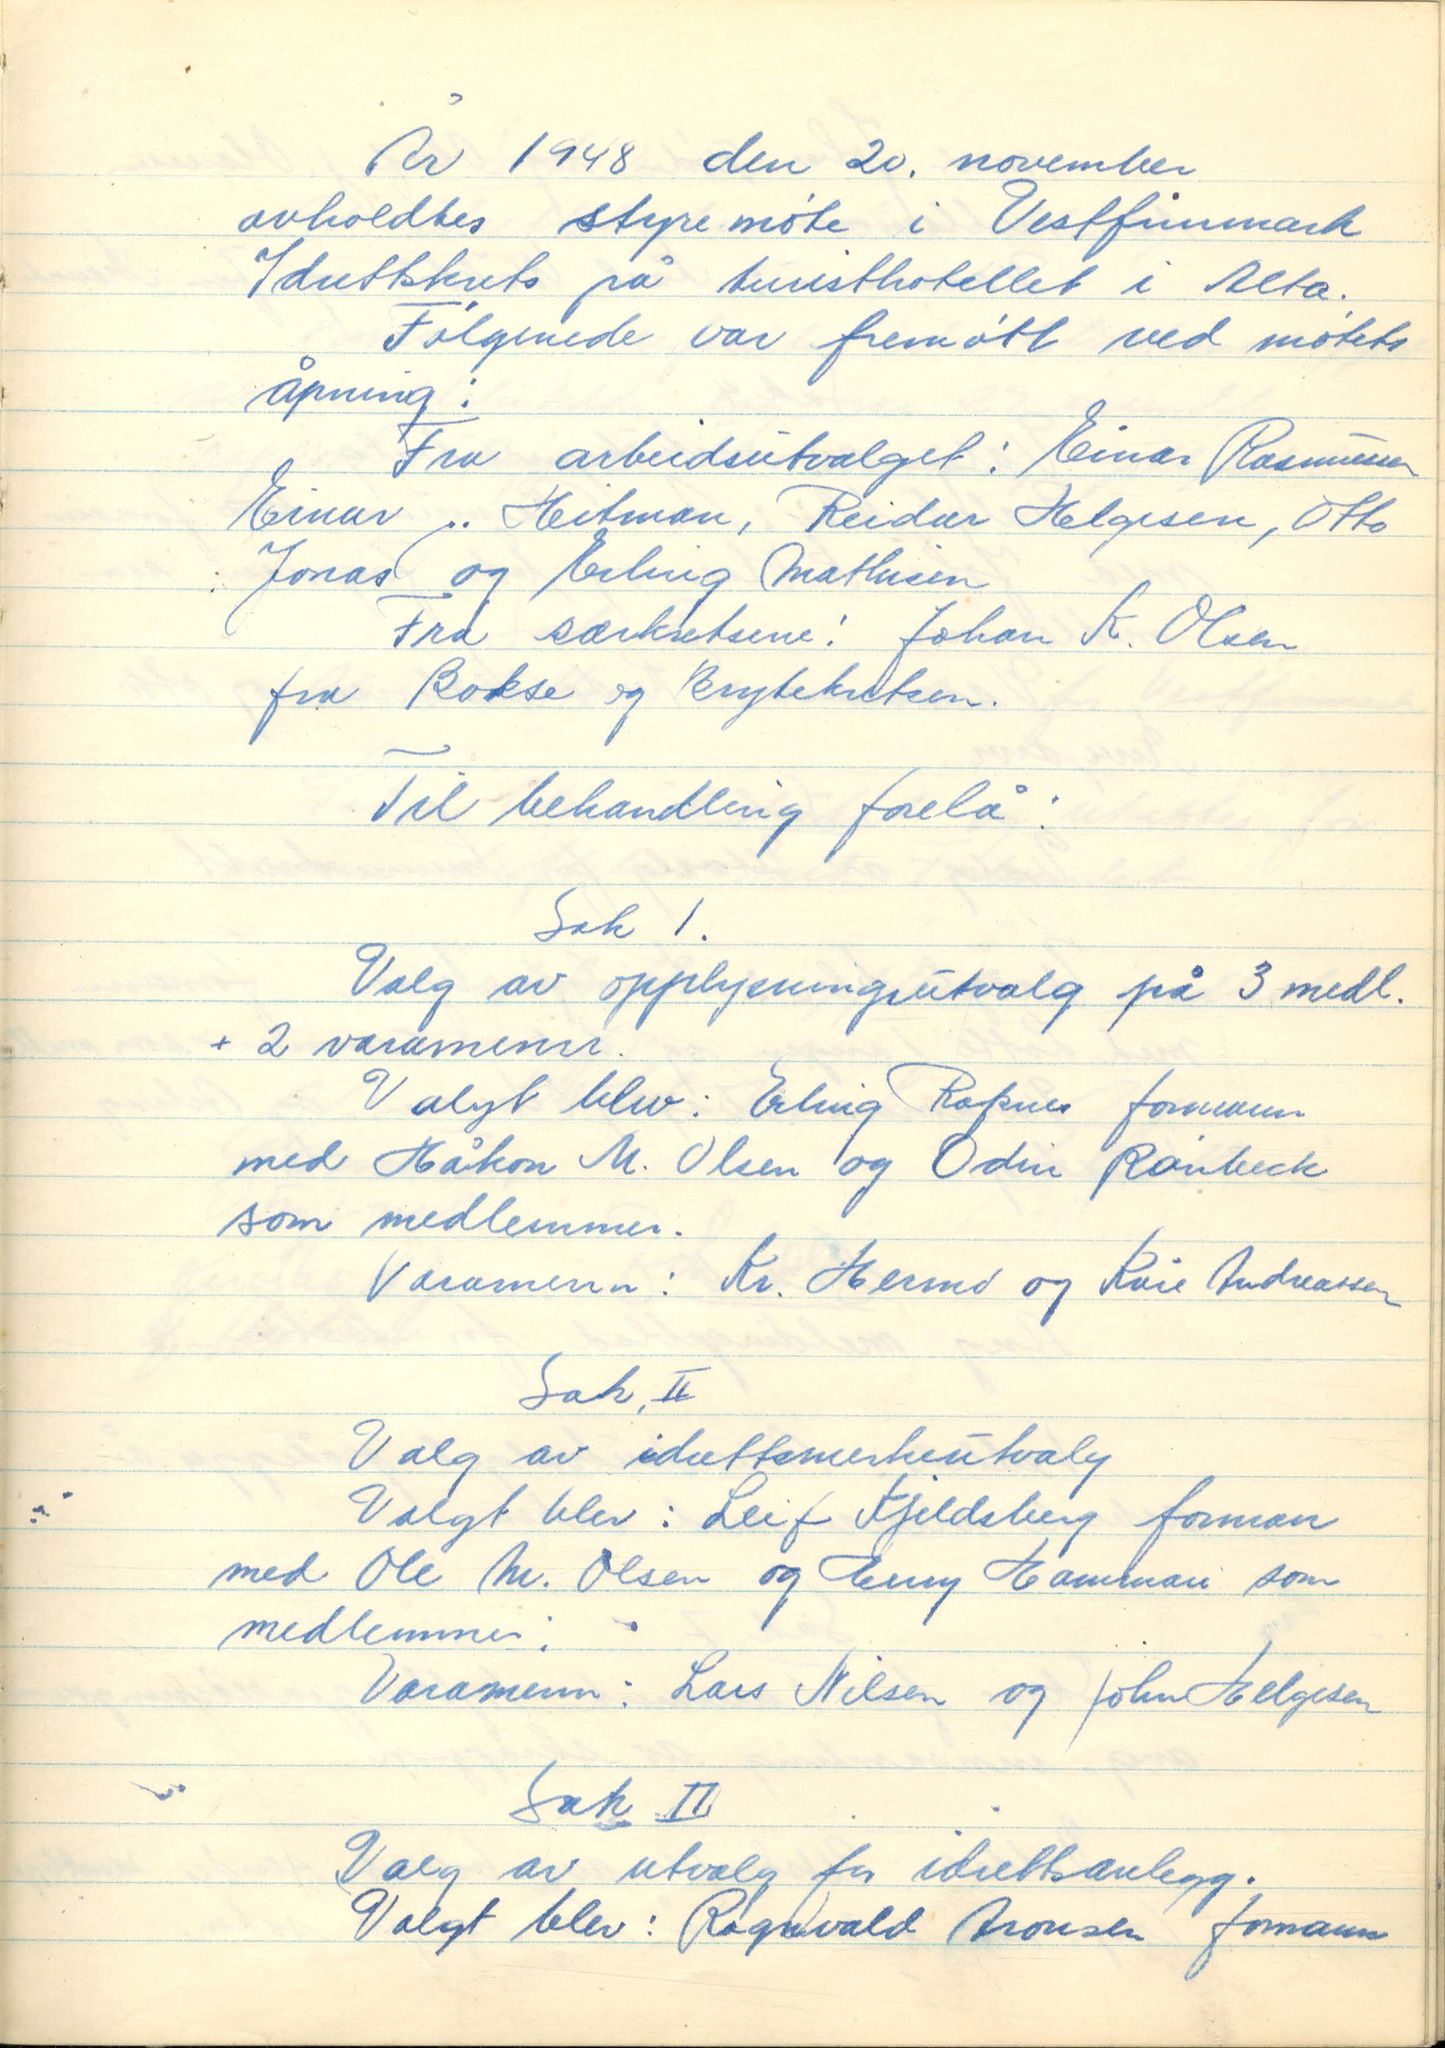 År 1948 den 20. november
avholdtes styremöte i Vestfinnmark
Idrettskrets på turisthotellet i Alta.
Følgenede var fremött ved mötets
åpning:
Fra arbeidsutvalget: Einar Rasmussen
Einar Heitman, Reidar Helgesen, Otto
Jonas og Erling Mathisen
Fra særkretsene: Johan K. Olsen
fra Bokse og Brytekretsen.
Til behandling forelå:
Sak 1.
Valg av opplysningsutvalg på 3 medl.
+ 2 varamenn.
Valgt blev: Erling Rapnes formann
med Håkon M. Olsen og Odin Rønbeck
som medlemmer.
Varamenn: Kr. Hermo og Kåre Andreassen
Sak, II
Valg av idrettsmerkeutvalg
Valgt blev: Leif Kjeldsberg forman
med Ole M. Olsen og Hammari som
medlemmer.
Varamenn: Lars Nilsen og John Helgesen
Sak II
Valg av utvalg for idrettsanlegg.
Valgt blev: Ragnvald Aronsen formann